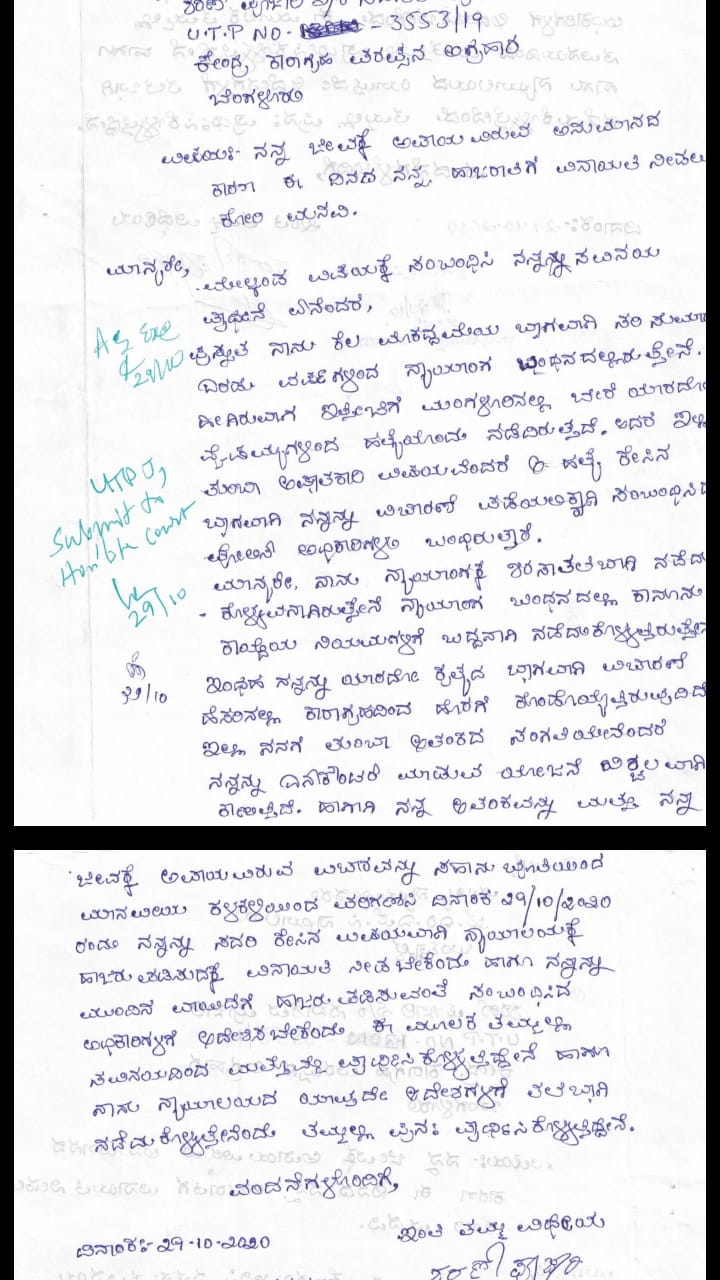 U.T.P NO. - 3553/19
ಕೇಂದ್ರ ಕಾರಾಗೃಹ ಪರಪ್ಪನ ಅಗ್ರಹಾರ
ಬೆಂಗಳೂರು
ವಿಷಯ:- ನನ್ನ ಜೀವಕ್ಕೆ ಅಪಾಯವಿರುವ ಅನುಮಾನದ
ಕಾರಣ ಈ ದಿನದ ನನ್ನ ಹಾಜರಾತಿಗೆ ವಿನಾಯತಿ ನೀಡಲು
ಕೋರಿ ಮನವಿ.
ಮಾನ್ಯರೇ,
ಮೇಲ್ಕಂಡ ವಿಷಯಕ್ಕೆ ಸಂಬಂಧಿಸಿ ನನ್ನನ್ನು ಸವಿನಯ
ಪ್ರಾರ್ಥನೆ ಏನೆಂದರೆ,
ಪ್ರಸ್ತುತ ನಾನು ಕೆಲ ಮೊಕದ್ದಮೆಯ ಭಾಗವಾಗಿ ಸರಿ ಸುಮಾರು
ಎರಡು ವರ್ಷಗಳಿಂದ ನ್ಯಾಯಾಂಗ ಬಂಧನದಲ್ಲಿರುತ್ತೇನೆ.
ಹೀಗಿರುವಾಗ ಇತ್ತೀಚೆಗೆ ಮಂಗಳೂರಿನಲ್ಲಿ ಬೇರೆ ಯಾರದೋ
ವೈಷಮ್ಯಗಳಿಂದ ಹತ್ಯೆಯೊಂದು ನಡೆದಿರುತ್ತದೆ. ಆದರೆ ಇಲ್ಲಿ
ತುಂಬಾ ಆಘಾತಕಾರಿ ವಿಷಯವೆಂದರೆ ಆ ಹತ್ಯೆ ಕೇಸಿನ
ಭಾಗವಾಗಿ ನನ್ನನ್ನು ವಿಚಾರಣೆ ಪಡೆಯಲಿಕ್ಕಾಗಿ ಸಂಬಂಧಿಸಿದ
ಪೋಲೀಸ್ ಅಧಿಕಾರಿಗಳು ಬಂದಿರುತ್ತಾರೆ.
ಮಾನ್ಯರೇ, ನಾನು ನ್ಯಾಯಾಂಗಕ್ಕೆ ಶಿರಸಾ ತಲೆಬಾಗಿ ನಡೆದು
ಕೊಳ್ಳುವನಾಗಿರುತ್ತೇನೆ ನ್ಯಾಯಾಂಗ ಬಂಧನದಲ್ಲಿ ಕಾನೂನು
ಕಾಯ್ದೆಯ ನಿಯಮಗಳಿಗೆ ಬದ್ದನಾಗಿ ನಡೆದುಕೊಳ್ಳುತ್ತಿರುತ್ತೇನೆ
ಇಂಥಹ ನನ್ನನ್ನು ಯಾರದೋ ಕೃತ್ಯದ ಭಾಗವಾಗಿ ವಿಚಾರಣೆ
ಹೆಸರಿನಲ್ಲಿ ಕಾರಾಗೃಹದಿಂದ ಹೊರಗೆ ಕೊಂಡೊಯ್ಯುತ್ತಿರುವುದಿದೆ
ಇಲ್ಲಿ ನನಗೆ ತುಂಬಾ ಆತಂಕದ ಸಂಗತಿಯೇನೆಂದರೆ
ನನ್ನನ್ನು ಎನ್‌ಕೌಂಟರ್ ಮಾಡುವ ಯೋಜನೆ ನಿಚ್ಚಲವಾಗಿ
ಕಾಣುತ್ತಿದೆ. ಹಾಗಾಗಿ ನನ್ನ ಆತಂಕವನ್ನು ಮತ್ತೂ ನನ್ನ
A2 Exe
29/10
UTPO,
Submit to
Hon'ble court
29/10
29/10
ಜೀವಕ್ಕೆ ಅಪಾಯವಿರುವ ವಿಚಾರವನ್ನು ಸಹಾನುಭೂತಿಯಿಂದ
ಮಾನವೀಯ ಕಳಕಳಿಯಿಂದ ಪರಿಗಣಿಸಿ ದಿನಾಂಕ 29/10/2020
ರಂದು ನನ್ನನ್ನು ಸದರಿ ಕೇಸಿನ ವಿಷಯವಾಗಿ ನ್ಯಾಯಾಲಯಕ್ಕೆ
ಹಾಜರು ಪಡಿಸುದಕ್ಕೆ ವಿನಾಯತಿ ನೀಡಬೇಕೆಂದು ಹಾಗೂ ನನ್ನನ್ನು
ಮುಂದಿನ ವಾಯಿದೆಗೆ ಹಾಜರು ಪಡಿಸುವಂತೆ ಸಂಬಂಧಿಸಿದ
ಅಧಿಕಾರಿಗಳಿಗೆ ಆದೇಶಿಸಬೇಕೆಂದು ಈ ಮೂಲಕ ತಮ್ಮಲ್ಲಿ
ಸವಿನಯದಿಂದ ಮತ್ತೊಮ್ಮೆ ಪ್ರಾರ್ಥಿಸಿಕೊಳ್ಳುತ್ತಿದ್ದೇನೆ ಹಾಗೂ
ನಾನು ನ್ಯಾಯಾಲಯದ ಯಾವುದೇ ಆದೇಶಗಳಿಗೆ ತಲೆಬಾಗಿ
ನಡೆದುಕೊಳ್ಳುತ್ತೇನೆಂದು ತಮ್ಮಲ್ಲಿ ಪುನಃ ಪ್ರಾರ್ಥಿಸಿಕೊಳ್ಳುತ್ತಿದ್ದೇನೆ.
ವಂದನೆಗಳೊಂದಿಗೆ,
ದಿನಾಂಕ:- 29-10-2020
ಇಂತಿ ತಮ್ಮ ವಿಧೇಯ